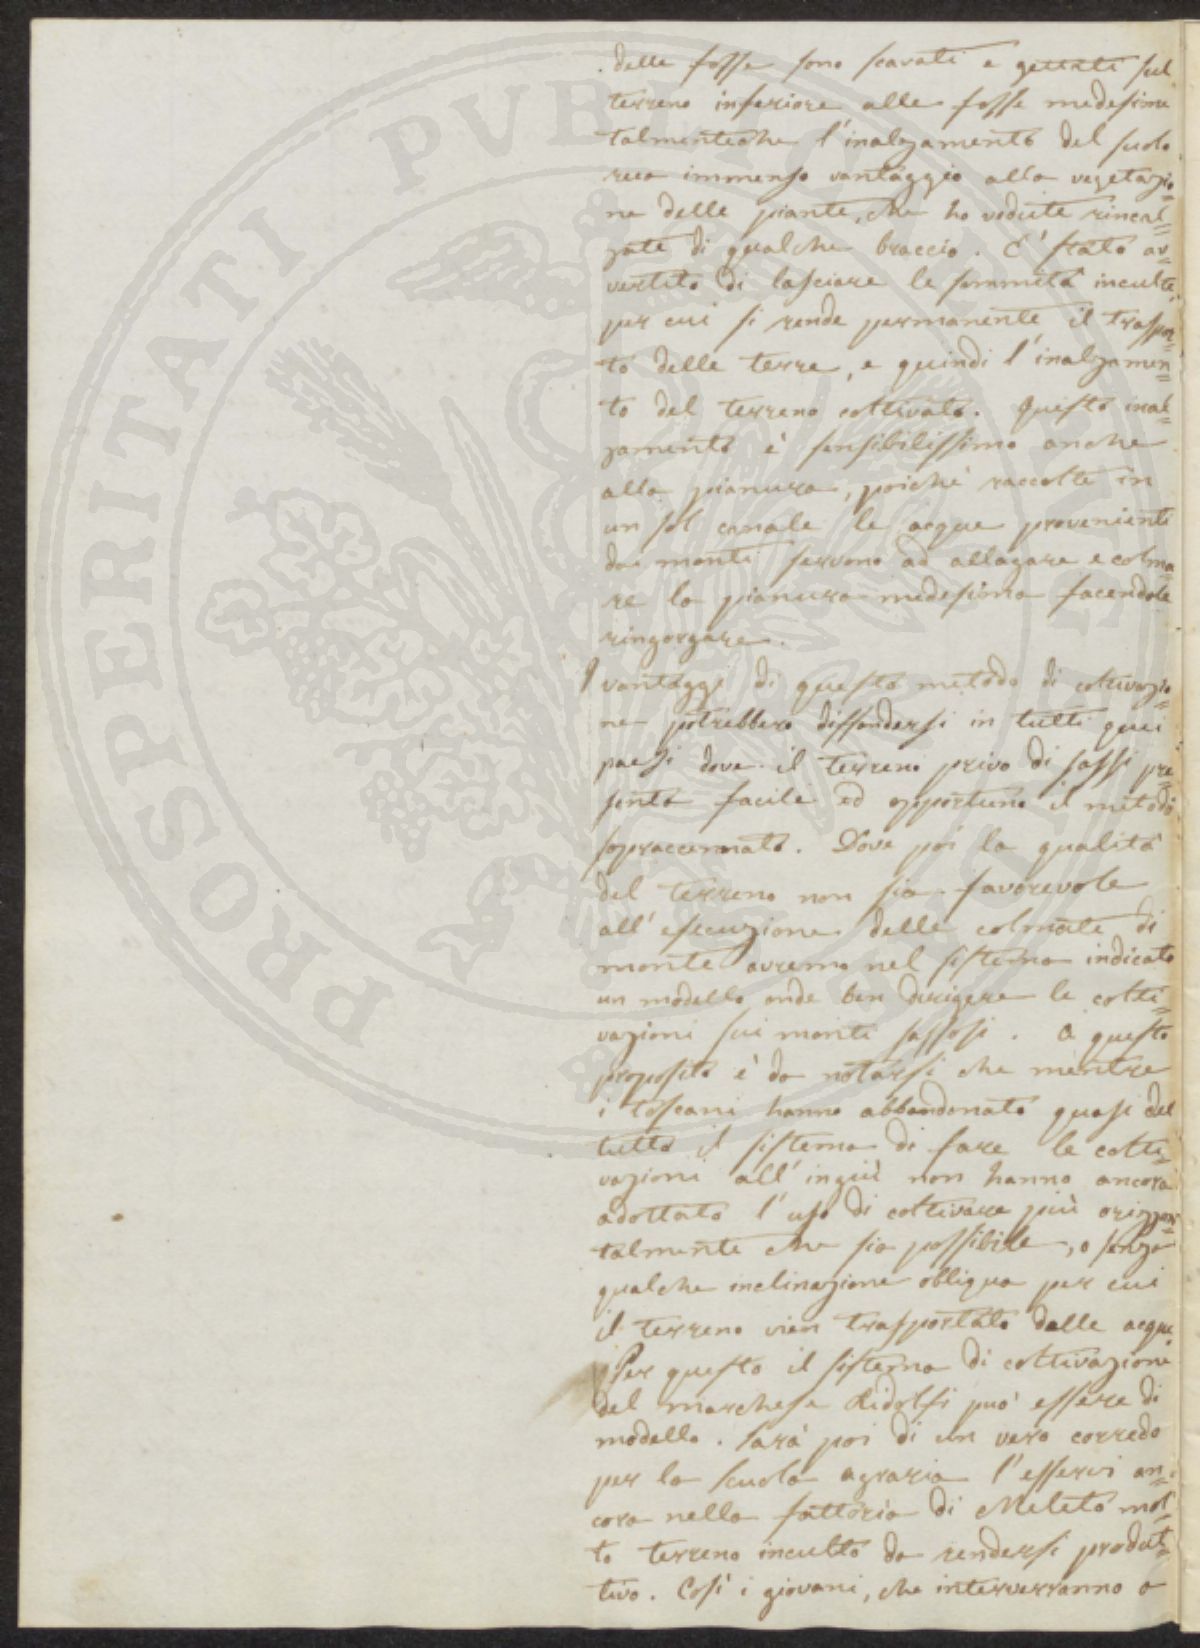 delle fosse sono scavati e gettati sul
terreno inferiore alle fosse medesime
talmenteche l'inalzamento del suolo
reca immenso vantaggio alla vegetazio=
ne delle piante, che ho vedute rincal=
zate di qualche braccio. E' stato av=
vertito di lasciare le sommità inculte,
per cui si rende permanente il traspor=
to delle terre, e quindi l'inalzamen=
to del terreno coltivato. Questo inal=
zamento è sensibilissimo anche
alla pianura, poichè raccolte in
un sol canale le acque provenienti
da monti servono ad allagare e colma=
re la pianura medesima facendole
ringorgare.
I vantaggi di questo metodo di coltivazio=
ne potrebbero diffondersi in tutti quei
paesi dove il terreno privo di sassi pre=
senta facile ed opportuno il metodo
sopraccennato. Dove poi la qualità
del terreno non sia favorevole
all'esecuzione delle colmate di
monte avremo nel sistema indicato
un modello onde ben dirigere le colti=
vazioni sui monti sassosi. A questo
proposito è da notarsi che mentre
i toscani hanno abbandonato quasi del
tutto il sistema di fare le colti=
vazioni all'ingiù non hanno ancora
adottato l'uso di coltivare più orizzon=
talmente che sia possibile, o senza
qualche inclinazione obliqua per cui
il terreno vien trasportato dalle acque.
Per questo il sistema di coltivazione
del marchese Ridolfi può essere di
modello. Sarà poi di un vero corredo
per la scuola agraria l'esservi an=
cora nella fattoria di Meleto mol=
to terreno incolto da rendersi produt=
tivo. Così i giovani, che interverranno a
PROSPERITATI PVBLICAE